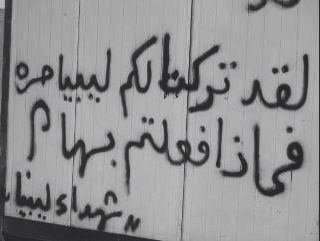 لقد تركنا لكم ليبيا حره
فماذا فعلتم بها ؟
شهداء ليبيا